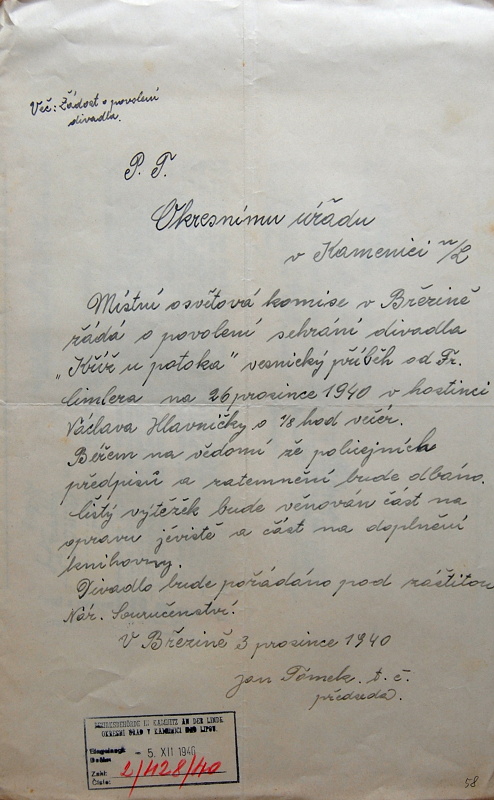 Věc: Žádost o povolení
divadla.
P. T.
Okresnímu úřádu
v Kamenici n/L
Místní osvětová komise v Březině
žádá o povolení sehrání divadla
„Kříž u potoka" vesnický příběh od Fr.
Cimlera na 26 prosince 1940 v hostinci
Václava Hlavničky o 1/8 hod večer.
Béřem na vědomí že policejních
předpisů a zatemnění bude dbáno.
Čistý výtěžek bude věnován část na
opravu jeviště a část na doplnění
knihovny.
Divadlo bude pořádáno pod záštitou
Nár. Souručenství.
V Březině 3 prosince 1940
Jan Tomek. t. č.
předseda.
BEZIRKSBEHÖRDE IN KAMNITZ AN DER LINDE
OKRESNÍ ÚŘAD V KAMENICI NAD LIPOU.
Eingelangt
Došlo:
- 5. XII 1940
Zahl:
Číslo:
2/428/40
58